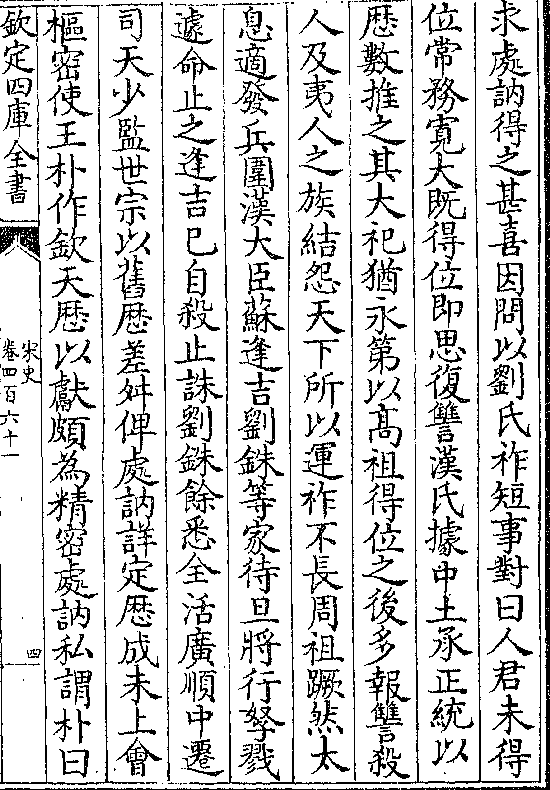 求處訥得之甚喜因問以劉氏祚短事對曰人君未得
位常務寛大既得位即思復讐漢氏據中土承正統以
歴數推之其大祀猶永第以髙祖得位之後多報讐殺
人及夷人之族結怨天下所以運祚不長周祖蹶然太
息適發兵圍漢大臣蘇逢吉劉銖等家待旦將行孥戮
遽命止之逢吉已自殺止誅劉銖餘悉全活廣順中遷
司天少監世宗以舊厯差舛俾處訥詳定厯成未上會
樞密使王朴作欽天厯以獻頗為精密處訥私謂朴曰
欽定四庫全書
宋史
卷四百六十一
四